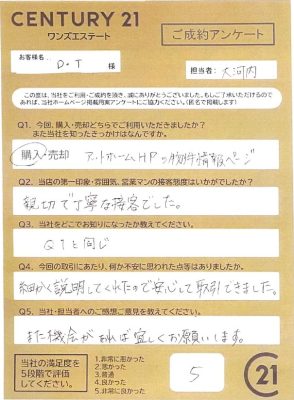 CENTURY 21
ワンズエステート
ご成約アンケート
お客様名
D・T 様
担当者: 大河内
この度は、当社をご利用・ご成約を頂き、誠にありがとうございました。もしご了承いただけるので
あれば、当社ホームページ掲載用案アンケートにご協力ください。(匿名で掲載します)
Q1. 今回、購入・売却どちらでご利用いただきましたか?
また当社を知ったきっかけはなんですか。
購入・売却 アットホームHPの物件情報ページ
Q2. 当店の第一印象・雰囲気、営業マンの接客態度はいかがでしたか?
親切で丁寧な接客でした。
Q3. 当社をどこでお知りになったか教えてください。
Q1と同じ
Q4. 今回の取引にあたり、何か不安に思われた点等はありましたか。
細かく説明してくれたので安心して取引できました。
Q5. 当社・担当者へのご感想ご意見を教えてください。
また機会があれば宜しくお願いします。
当社の満足度を
5段階で評価
してください。
1.非常に悪かった
2.悪かった
3.普通
4.良かった
5.非常に良かった
5
C21